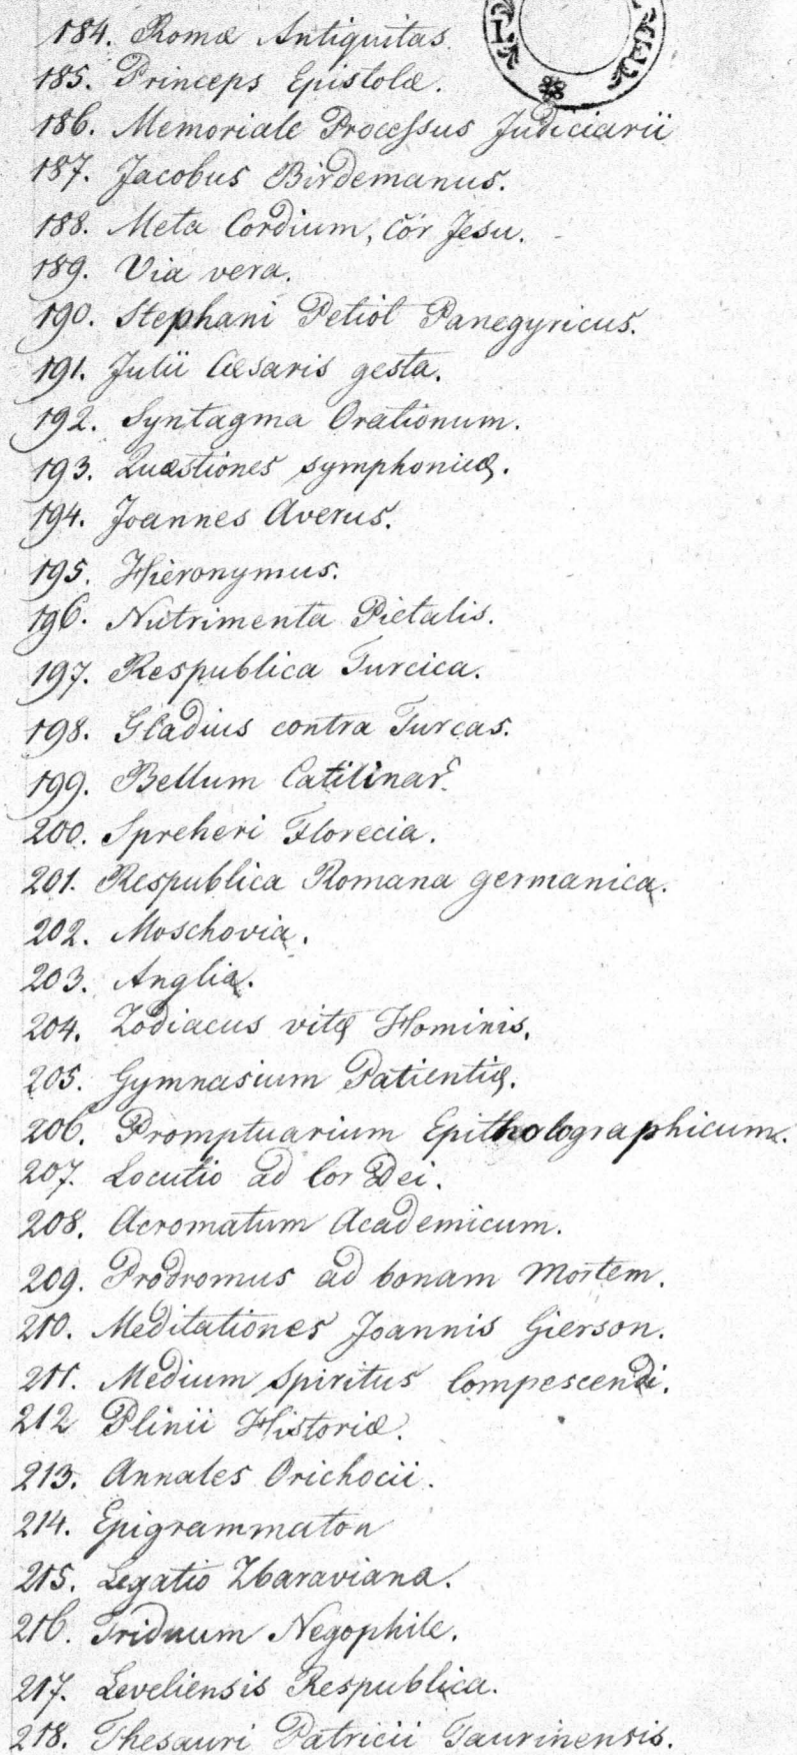 184. Romæ Antiquitas
185. Princeps Epistolæ.
186. Memoriale Processus Judiciarii
187. Jacobus Birdemanus.
188. Meta Cordium, Cor Jesu.
189. Via vera.
190. Stephani Petiol Panegyricus.
191. Julii Cæsaris gesta.
192. Syntagma Orationum.
193. Quæstiones symphoniæ.
194. Joannes Averus.
195. Hieronymus.
196. Nutrimenta Pietatis.
197. Respublica Turcica.
198. Gladius contra Turcas.
199. Bellum Catilinar.
200. Spreheri Florecia.
201. Respublica Romana germanica.
202. Moschovia.
203. Anglia.
204. Zodiacus vitę Hominis.
205. Gymnasium Patientię.
206. Promptuarium Epitholographicum.
207. Locutio ad Cor Dei.
208. Acromatum Academicum.
209. Prodromus ad bonam Mortem.
210. Meditationes Joannis Gierson.
211. Medium Spiritus Compescendi.
212 Plinii Historiæ.
213. Annales Orichocii.
214. Epigrammaton
215. Legatio Zbaraviana.
216. Triduum Negophile.
217. Leveliensis Respublica.
218. Thesauri Patricii Taurinensis.